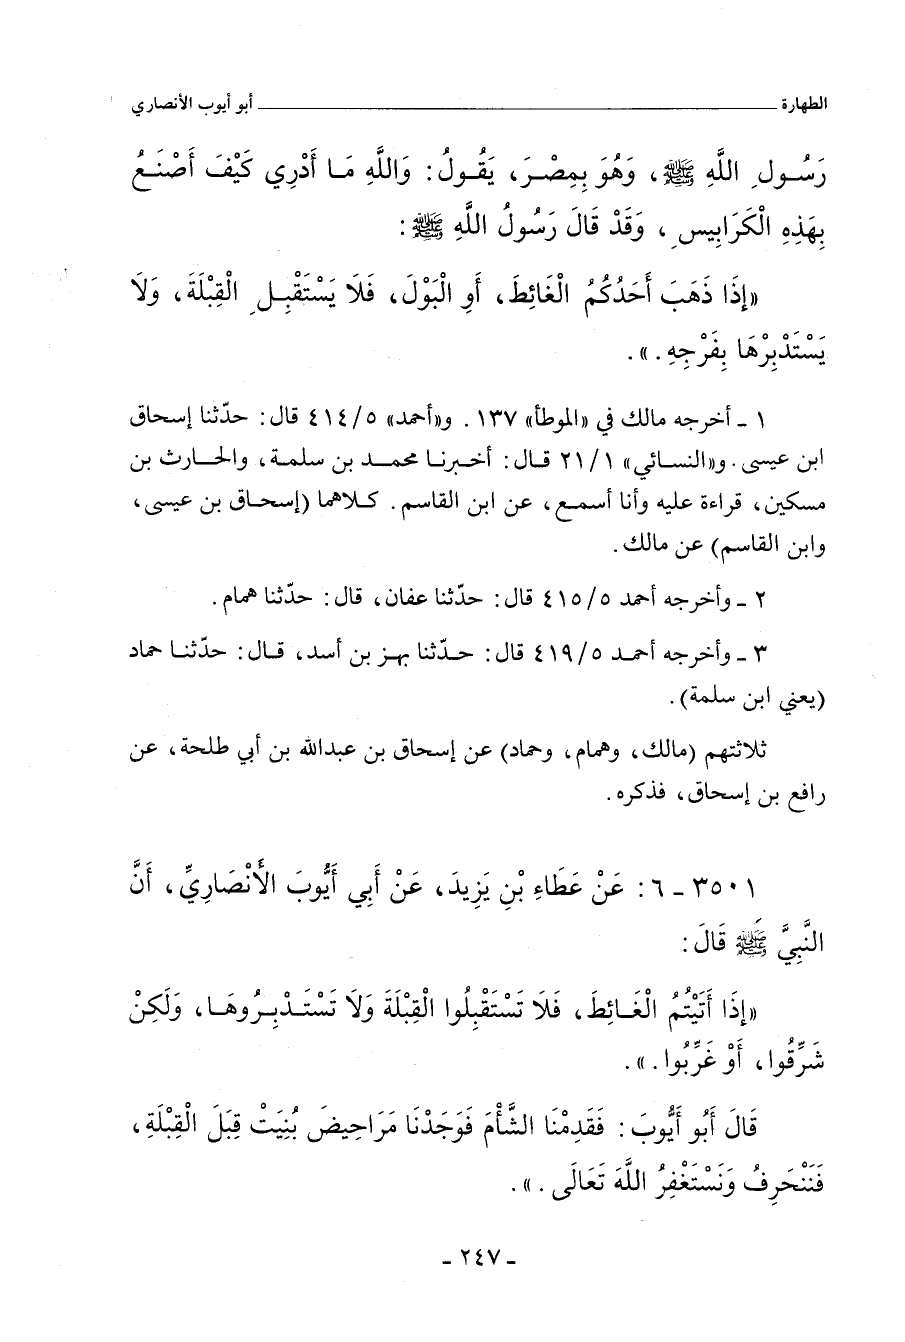 الطهارة ـــــــــــــــــــــ أبو أيوب الأنصاري
رَسُولِ اللَّهِ ﷺ، وَهُوَ بِمِصْرَ، يَقُولُ: وَاللَّهِ مَا أَدْرِي كَيْفَ أَصْنَعُ
بِهَذِهِ الْكَرَابِيسِ، وَقَدْ قَالَ رَسُولُ اللَّهِ ﷺ:
«إِذَا ذَهَبَ أَحَدُكُمُ الْغَائِطَ، أَوِ الْبَوْلَ، فَلَا يَسْتَقْبِلِ الْقِبْلَةَ، وَلَا
يَسْتَدْبِرْهَا بِفَرْجِهِ.».
١ ـ أخرجه مالك في «الموطأ» ١٣٧. و«أحمد» ٤١٤/٥ قال: حدّثنا إسحاق
ابن عيسى. و«النسائي» ٢١/١ قال: أخبرنا محمد بن سلمة، والحارث بن
مسكين، قراءة عليه وأنا أسمع، عن ابن القاسم. كلاهما (إسحاق بن عيسى،
وابن القاسم) عن مالك.
٢ ـ وأخرجه أحمد ٤١٥/٥ قال: حدّثنا عفان، قال: حدّثنا همام.
٣ ـ وأخرجه أحمد ٤١٩/٥ قال: حدّثنا بهز بن أسد، قال: حدّثنا حماد
(يعني ابن سلمة).
ثلاثتهم (مالك، وهمام، وحماد) عن إسحاق بن عبدالله بن أبي طلحة، عن
رافع بن إسحاق، فذكره.
٣٥٠١ ـ ٦: عَنْ عَطَاءِ بْنِ يَزِيدَ، عَنْ أَبِي أَيُّوبَ الأَنْصَارِيِّ، أَنَّ
النَّبِيَّ ﷺ قَالَ:
«إِذَا أَتَيْتُمُ الْغَائِطَ، فَلَا تَسْتَقْبِلُوا الْقِبْلَةَ وَلَا تَسْتَدْبِرُوهَا، وَلَكِنْ
شَرِّقُوا، أَوْ غَرِّبُوا.».
قَالَ أَبُو أَيُّوبَ: فَقَدِمْنَا الشَّأْمَ فَوَجَدْنَا مَرَاحِيضَ بُنِيَتْ قِبَلَ الْقِبْلَةِ،
فَنَنْحَرِفُ وَنَسْتَغْفِرُ اللَّهَ تَعَالَى.».
ـ ٢٤٧ ـ